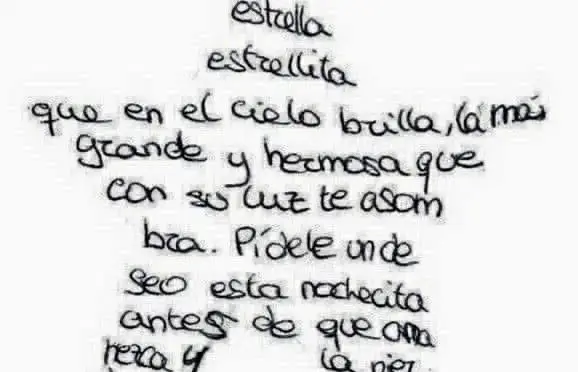 estrella
estrellita
que en el cielo brilla, la más
grande y hermosa que
con su luz te asom
bra. Pídele un de
seo esta nochecita
antes de que ama
nezca y la pier